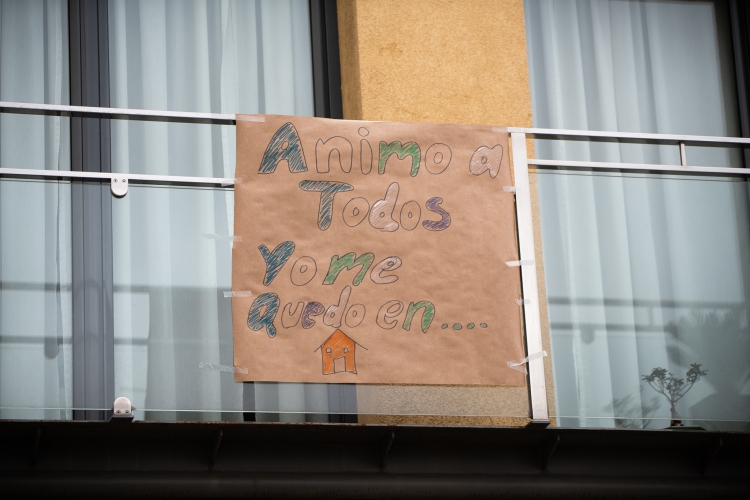 Animo a
Todos
Yo me
Quedo en....